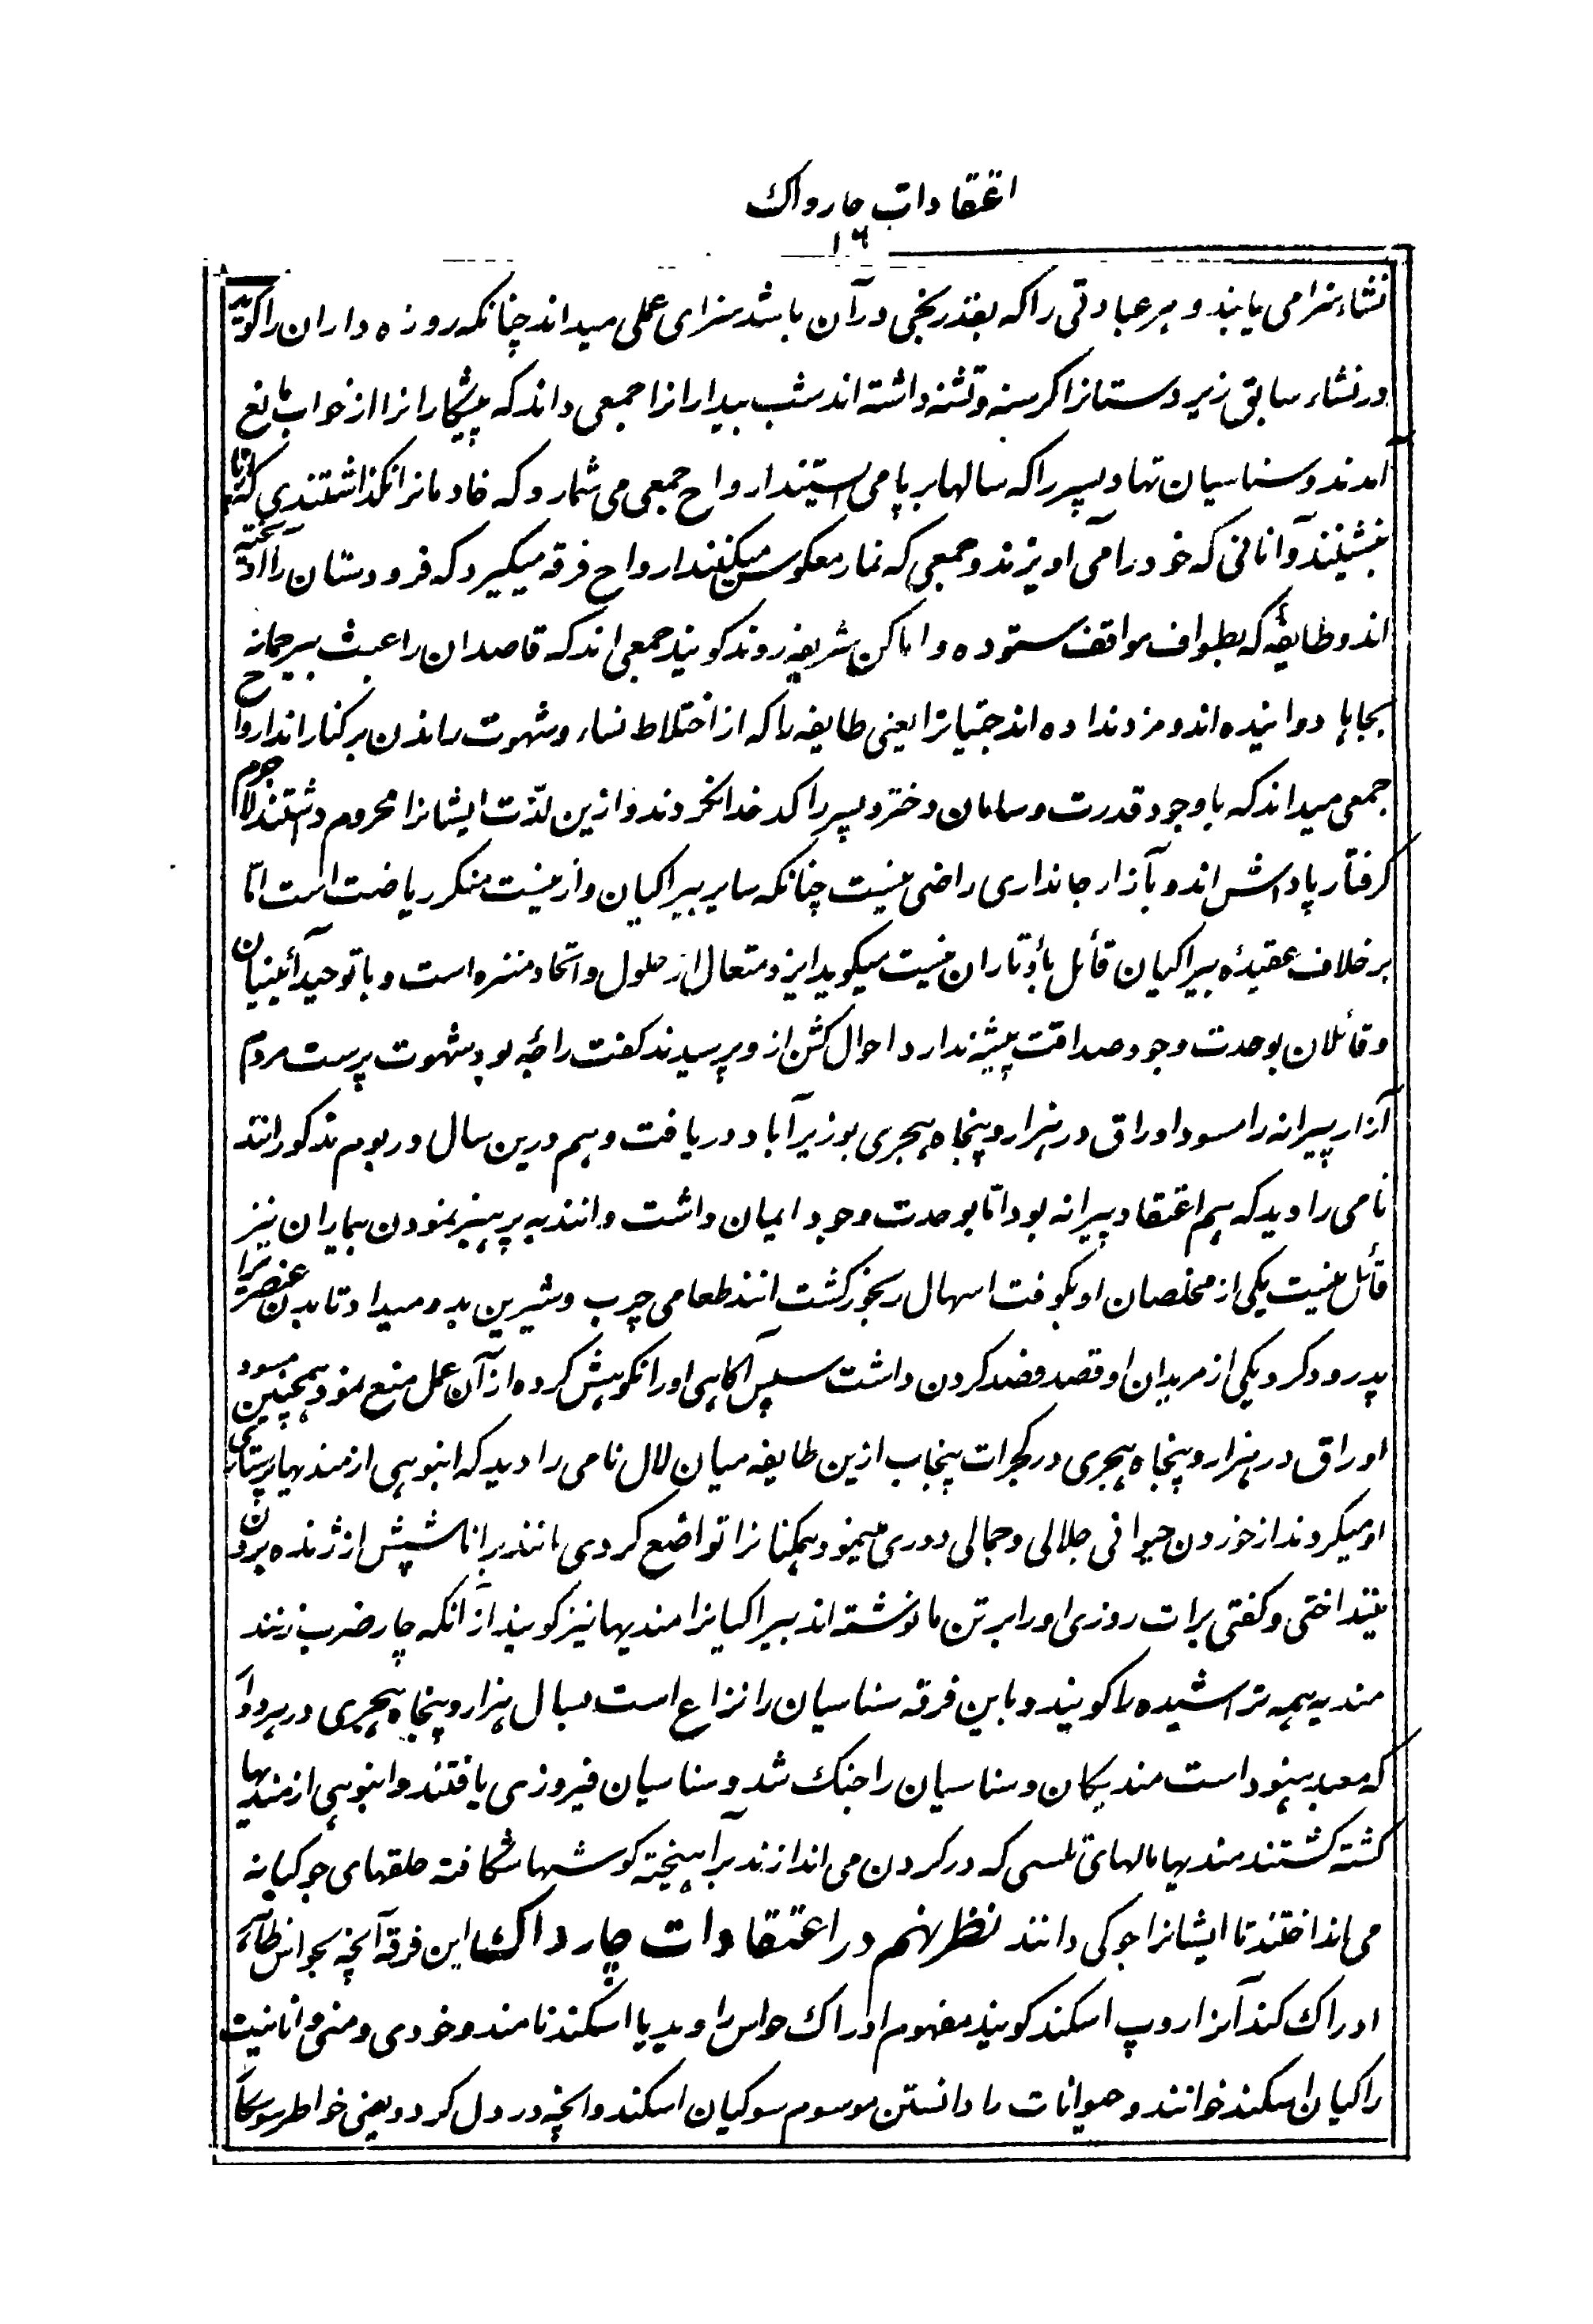 اعتقادات چارواک
۱۶
نشاء سزا می یابند و هر عبادتی را که بقدر رنجی در آن باشد سزای عملی میداند چنانکه روزه داران را گوید
در نشاء سابق زیر دستانرا گرسنه و تشنه داشته اند شب بیدارانرا جمعی داند که پیشکارانرا از خواب مانع
آمدند و سناسیان تهادیسیر را که سالها بر پا می استیند ارواح جمعی می شمارد که خادمانرا نگذاشتندی که
بنشینند و آنانی که خود را می آویزند و جمعی که نماز معکوس میکنند ارواح فرقه میگیرد که فرودستان را آویخته
اند و طایفهٔ که بطواف مواقف ستوده و اماکن شریفه روند گویند جمعی اند که قاصدان را عبث بیرحمانه
بجاها دوانیده اند و مزد نداده اند جتیانرا یعنی طایفه را که از اختلاط نساء و شهوت راندن بر کنار اند ارواح
جمعی میداند که با وجود قدرت و سامان دختر و پسر را کدخدا نکردند و ازین لذت ایشانرا محروم داشتند لاجرم
گرفتار پاداش اند و بآزار جانداری راضی نیست چنانکه سایر بیراکیان و از نیست منکر ریاضت است اما
بر خلاف عقیدهٔ بیراکیان قائل بأوتاران نیست میگوید ایزد متعال از حلول و اتحاد منزه است و با توحید آئینیان
و قائلان بوحدت وجود صداقت پیشه ندارد احوال کشن ازو پرسیدند گفت راجه بود شهوت پرست مردم
آزار پیرانه را مسود اوراق در هزار و پنجاه هجری بوزیرآباد دریافت و هم درین سال در بوم مذکور انند
نامی را دید که هم اعتقاد پیرانه بود اما بوحدت وجود ایمان داشت و انند به پرهیز نمودن بیماران نیز
قائل نیست یکی از مخلصان او بکوفت اسهال رنجور گشت انند طعامی چرب و شیرین بدو میداد تا بدن عنصری را
پدرود کرد و یکی از مریدان او قصد فصد کردن داشت سپس آگاهی او را نکوهش کرده از آن عمل منع نمود همچنین مسود
اوراق در هزار و پنجاه هجری در گجرات پنجاب ازین طایفه میان لال نامی را دید که انبوهی از مندیها پرستاری
او میکردند از خوردن حیوانی جلالی و جمالی دوری مینمود همگنانرا تواضع کردی مانند پرانا شپش از ژنده بیرون
نینداختی و گفتی برات روزی او را بر تن ما نوشته اند بیراکیانرا مندیها نیز گویند از آنکه چار ضرب زنند
مندیه همه تراشیده را گویند و با این فرقه سناسیان را نزاع است بسال هزار و پنجاه هجری در هردوار
که معبد هنود است مندیکان و سناسیان را جنگ شد و سناسیان فیروزی یافتند و انبوهی از مندیها
کشته گشتند مندیها مالهای تلسی که در گردن می اندازند بر آهیخته گوشها شگافته حلقهای جوگیانه
می انداختند تا ایشانرا جوگی دانند نظر نهم در اعتقادات چارواک این فرقه آنچه بحواس ظاهر
ادراک کند آنرا روپ اسکند گویند مفهوم ادراک حواس را ویدیا اسکند نامند و خودی و منی و انانیت
را کیان اسکند خوانند و حیوانات را دانستن موسوم سوکیان اسکند و آنچه در دل گردد یعنی خواطر